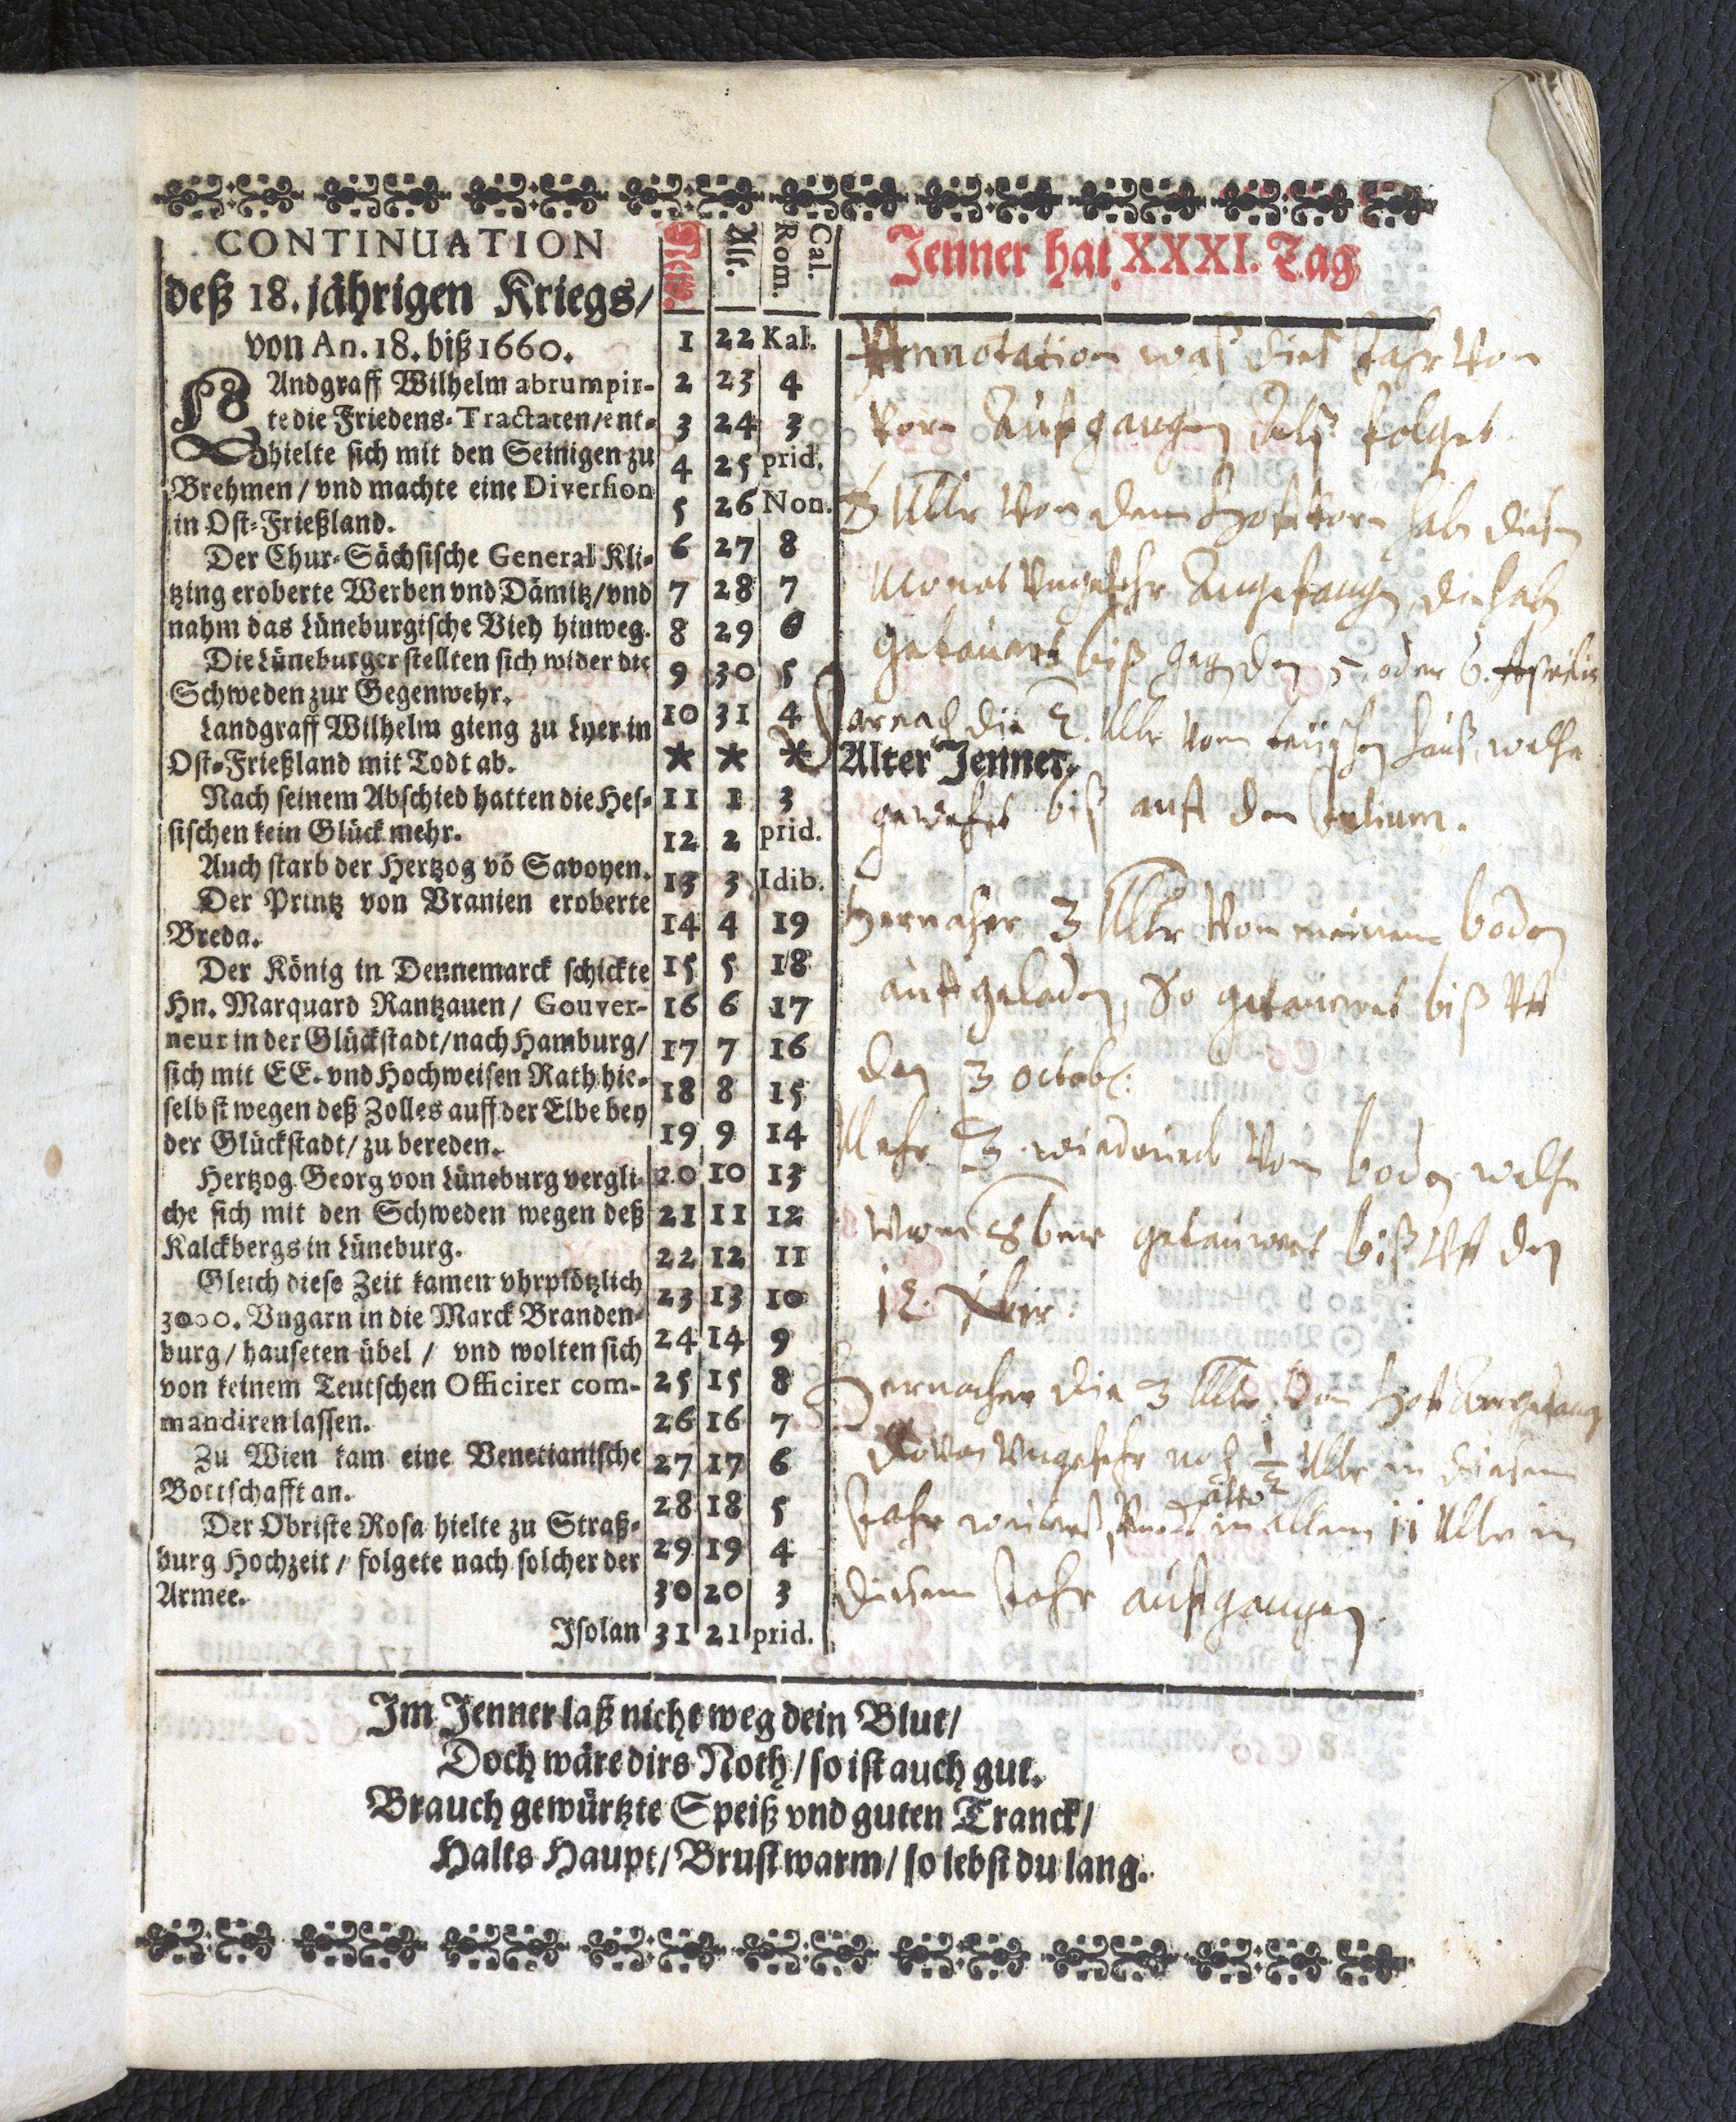 CONTINUATION
deß 18. jährigen Kriegs/
von An. 18. biß 1660.
LAndgraff Wilhelm abrumpir-
te die Friedens-Tractaten/ent-
hielte sich mit den Seinigen zu
Brehmen / vnd machte eine Diversion
in Ost-Frießland.
Der Chur-Sächsische General Kli-
tzing eroberte Werben vnd Dämitz/vnd
nahm das Lüneburgische Vieh hinweg.
Die Lüneburger stellten sich wider die
Schweden zur Gegenwehr.
Landgraff Wilhelm gieng zu Lyer in
Ost-Frießland mit Todt ab.
Nach seinem Abschied hatten die Hes-
sischen kein Glück mehr.
Auch starb der Hertzog võ Savoyen.
Der Printz von Vranien eroberte
Breda.
Der König in Dennemarck schickte
Hn. Marquard Rantzauen / Gouver-
neur in der Glückstadt/nach Hamburg/
sich mit EE. vnd Hochweisen Rath hie-
selbst wegen deß Zolles auff der Elbe bey
der Glückstadt/ zu bereden.
Hertzog Georg von Lüneburg vergli-
che sich mit den Schweden wegen deß
Kalckbergs in Lüneburg.
Gleich diese Zeit kamen vhrplötzlich
3000. Vngarn in die Marck Branden-
burg / hauseten übel / vnd wolten sich
von keinem Teutschen Officirer com-
mandiren lassen.
Zu Wien kam eine Venetianische
Bottschafft an.
Der Obriste Rosa hielte zu Straß-
burg Hochzeit / folgete nach solcher der
Armee.
Isolan
New. Alt. Cal. Rom.
1 22 Kal.
2 23 4
3 24 3
4 25 prid.
5 26 Non.
6 27 8
7 28 7
8 29 6
9 30 5
10 31 4
* * *
11 1 3
12 2 prid.
13 3 Idib.
14 4 19
15 5 18
16 6 17
17 7 16
18 8 15
19 9 14
20 10 13
21 11 12
22 12 11
23 13 10
24 14 9
25 15 8
26 16 7
27 17 6
28 18 5
29 19 4
30 20 3
31 21 prid.
Jenner hat XXXI. Tag
Annotation was dies Jahr von
Korn Aufgangen Alß folget.
3 Mltr von dem Hofkorn hab diesen
Monat Vngefehr Angefangen, die hab
getauert biß geg den 5. oder 6. Aprilis
Darnach die 2. Mltr vom hauß, welche
Alter Jenner.
gewehrt biß auff den Julium.
Hernacher 3 Mltr von meinem boden
auffgeladen, So getauwret biß vff
den 3 octob:
Mehr 3 wiederumb vom boden welche
8ber getauwret biß vff den
12. Xbir.
Hernacher die 3 Mltr vom Hoff
davon Vngefehr noch 1/2 Mltr in diesem
Jahr also in allem 11 Mltr in
diesem Jahr auffgangen.
Im Jenner laß nicht weg dein Blut/
Doch wäre dirs Noth / so ist auch gut.
Brauch gewürtzte Speiß vnd guten Tranck/
Halts Haupt / Brust warm / so lebst du lang.